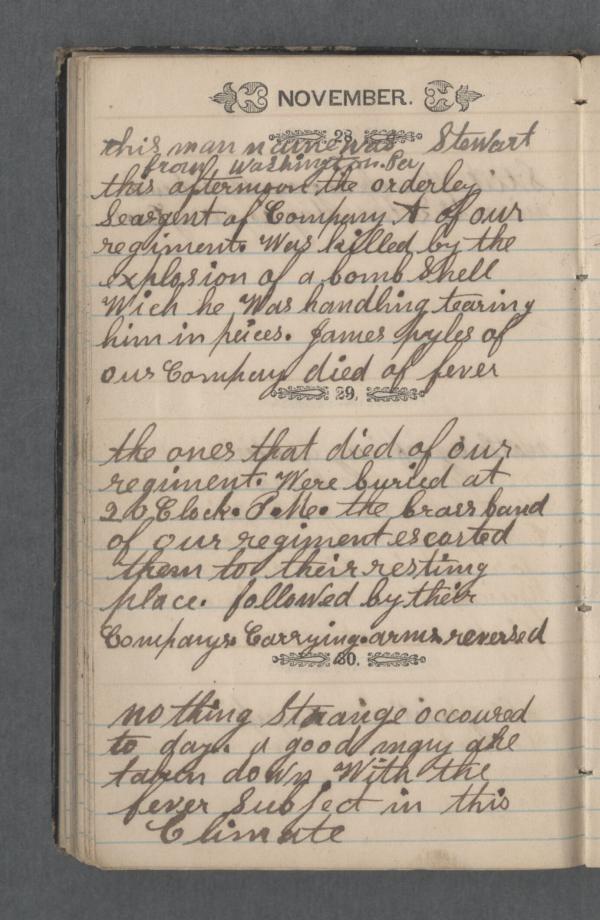 NOVEMBER.
28.
this man name was Stewart
from Washington. Pa
this afternoon the orderley
Seargent of Company A of our
regiment. Was killed by the
explosion of a bomb Shell
Wich he Was handling tearing
him in peices. James pyles of
our Company died of fever
29,
the ones that died of our
regiment. Were buried at
2 O Clock. P.M. the brass band
of our regiment escorted
them to their resting
place. followed by their
Companys. Carrying. arms. reversed
30.
nothing Strange occoured
to day. a good many are
taken down With the
fever Subject in this
Climate